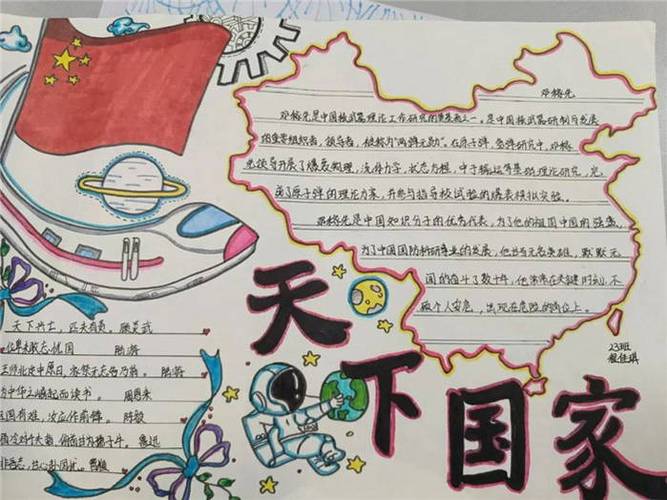 邓稼先
邓稼先是中国核武器理论工作研究的奠基者之一。是中国核武器研制与发展
的重要组织者，领导者，被称为“两弹元勋”。在原子弹、氢弹研究中，邓稼
先领导开展了爆轰物理，流体力学，状态方程，中子输运等基础理论研究，完
成了原子弹的理论方案，并参与指导核试验的爆轰模拟实验。
邓稼先是中国知识分子的优秀代表，为了他的祖国中国的强盛，
为了中国国防科研事业的发展，他甘当无名英雄，默默无
闻的奋斗了数十年，他常常在关键时刻，不
顾个人安危，出现在危险的岗位上。
23班
程佳琪
天下国家
天下兴亡，匹夫有责 顾炎武
位卑未敢忘忧国 陆游
王师北定中原日，家祭无忘告乃翁。陆游
为中华之崛起而读书。周恩来
国有难，汝应作前锋。陈毅
横眉冷对千夫指，俯首甘为孺子牛。鲁迅